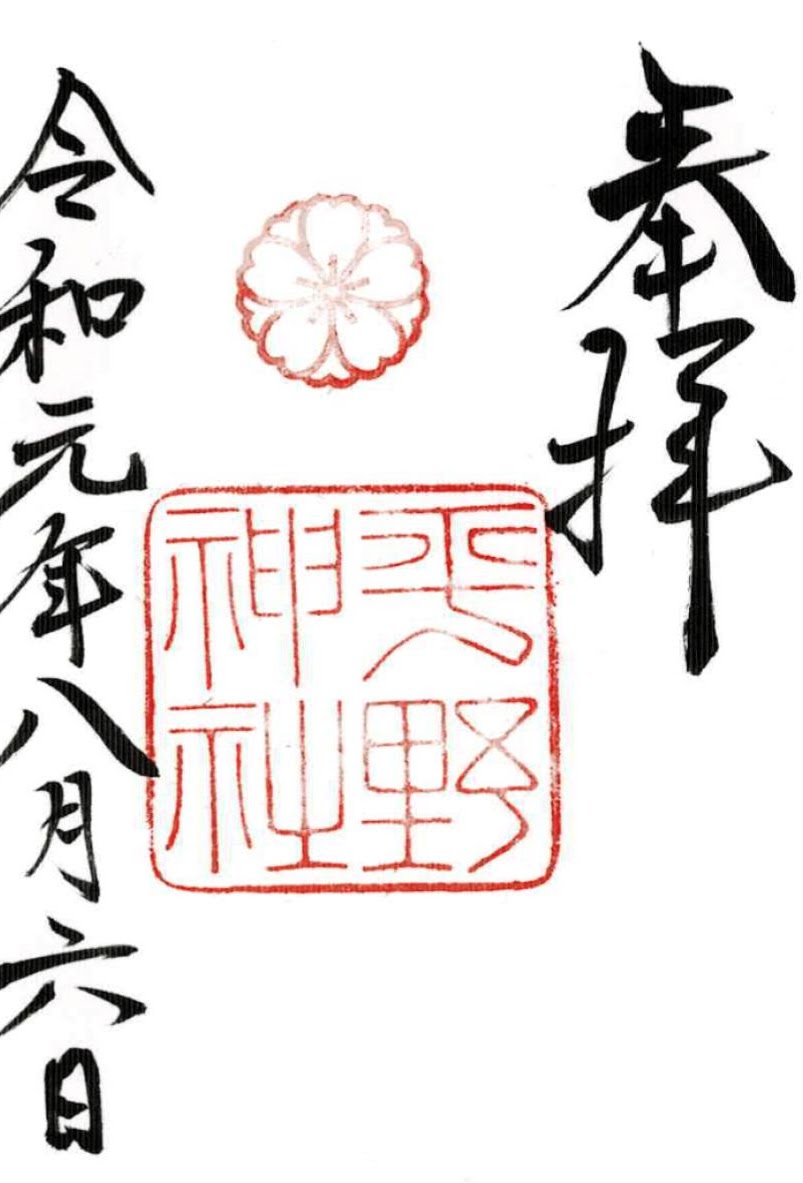 奉拝
平野
神社
令和元年八月六日